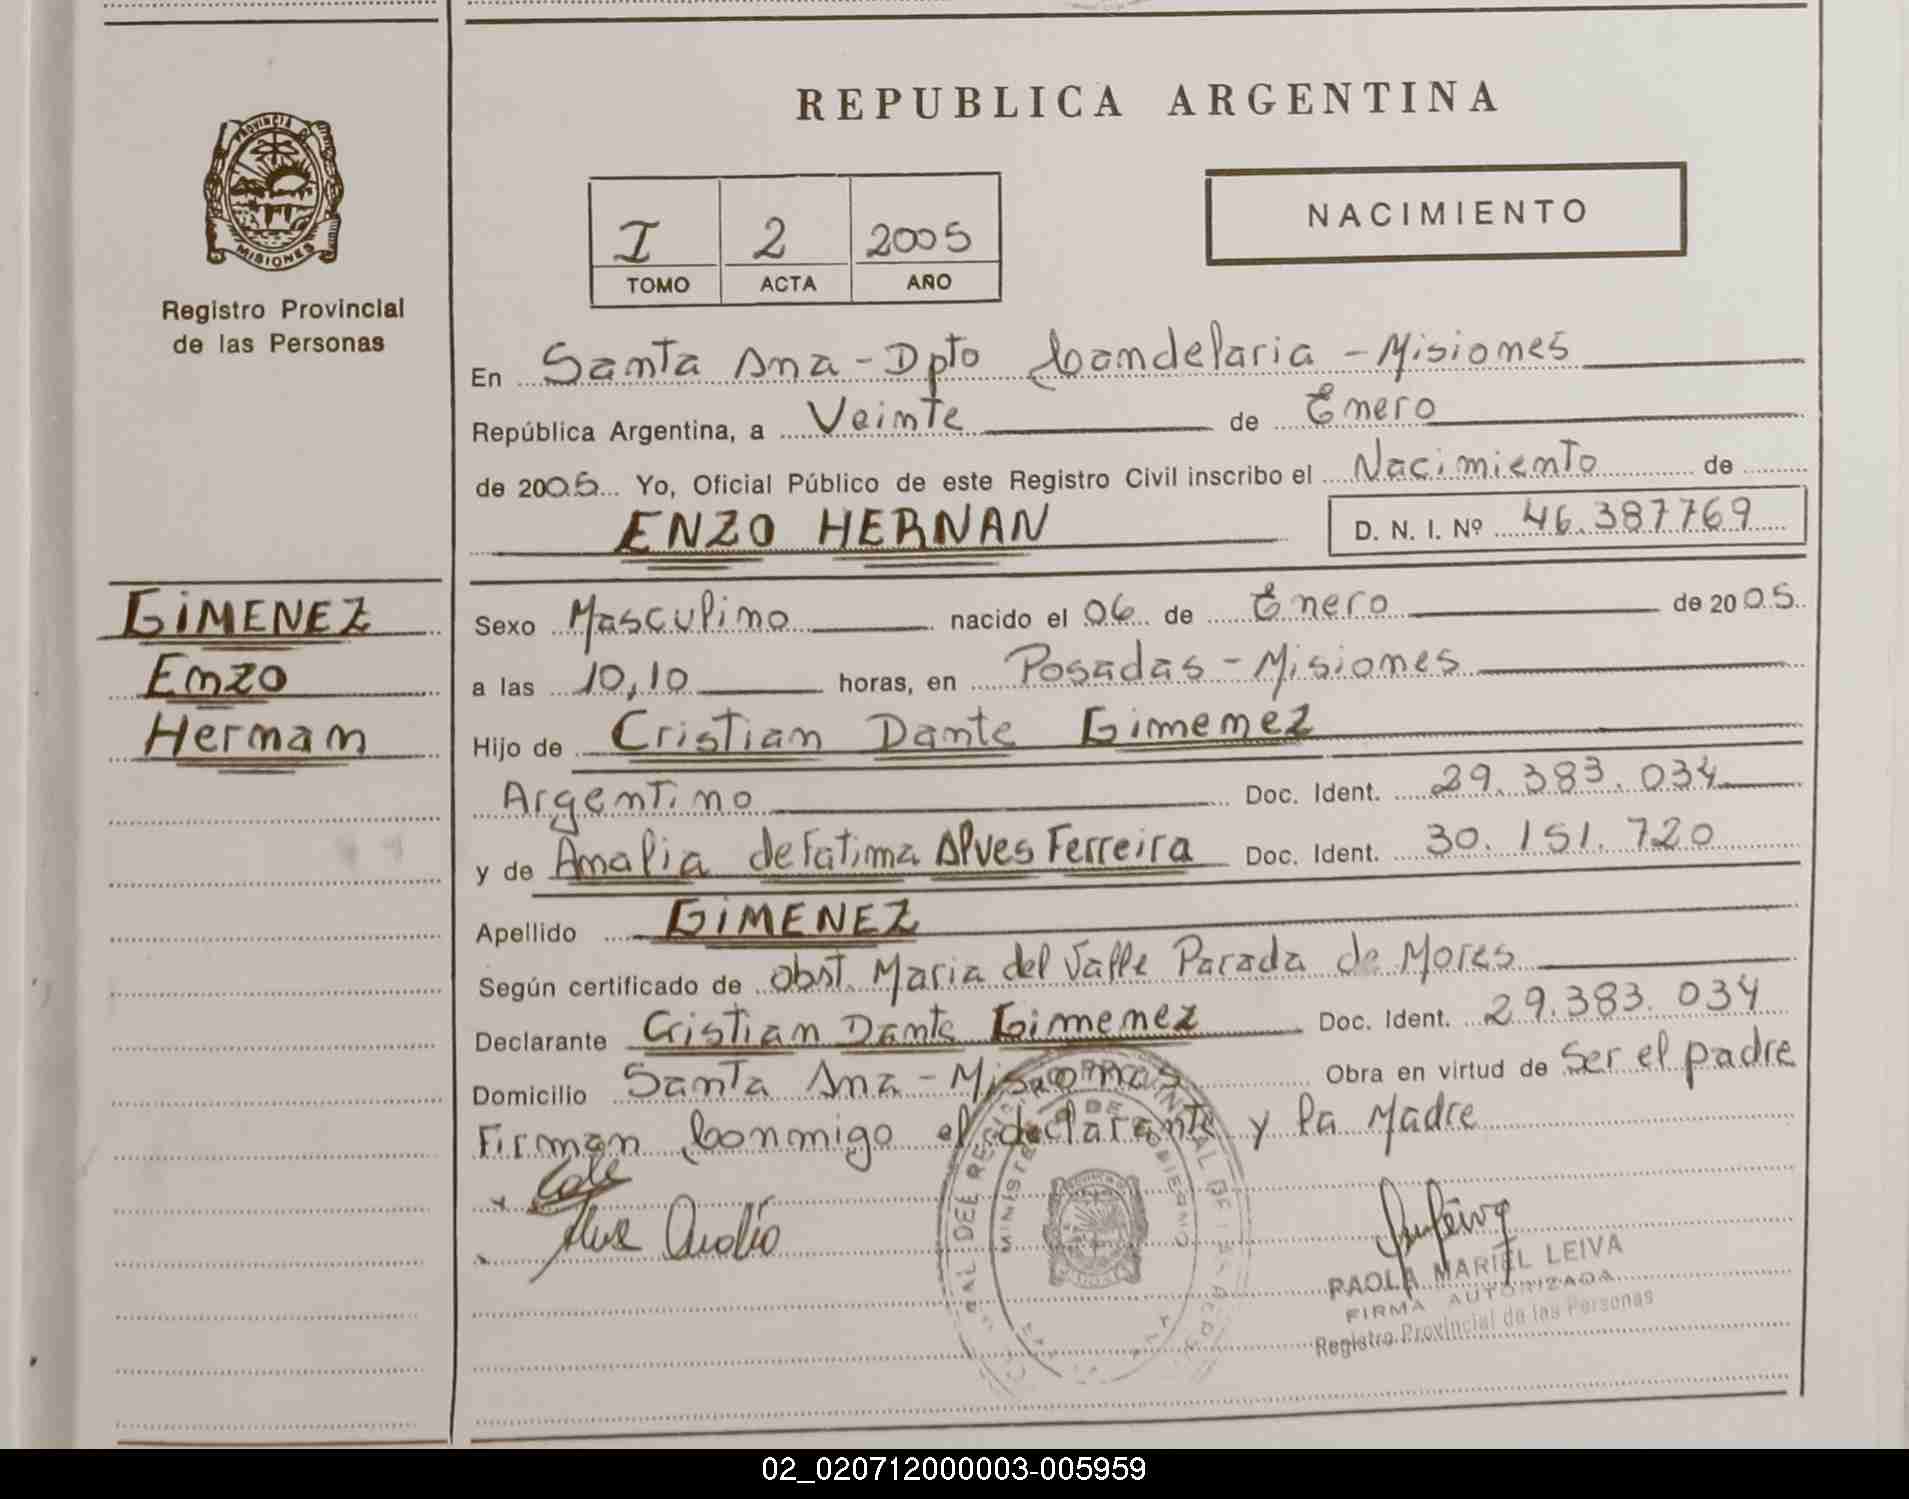 REPUBLICA ARGENTINA
PROVINCIA DE
MISIONES
Registro Provincial
de las Personas
I 2 2005
TOMO ACTA AÑO
NACIMIENTO
En Santa Ana - Dpto Candelaria - Misiones
República Argentina, a Veinte de Enero
de 2005 Yo, Oficial Público de este Registro Civil inscribo el Nacimiento de
ENZO HERNAN D. N. I. Nº 46.387769
GIMENEZ
Enzo
Hernan
Sexo Masculino nacido el 06 de Enero de 2005.
a las 10,10 horas, en Posadas - Misiones
Hijo de Cristian Dante Gimenez
Argentino Doc. Ident. 29.383.034
y de Amalia de Fatima Alves Ferreira Doc. Ident. 30.151.720
Apellido GIMENEZ
Según certificado de obst. Maria del Valle Parada de Mores
Declarante Cristian Dante Gimenez Doc. Ident. 29.383.034
Domicilio Santa Ana - Misiones Obra en virtud de Ser el padre
Firman Conmigo el declarante y la Madre
MINISTERIO DE GOBIERNO
PAOLA MARIEL LEIVA
FIRMA AUTORIZADA
Registro Provincial de las Personas
02_020712000003-005959